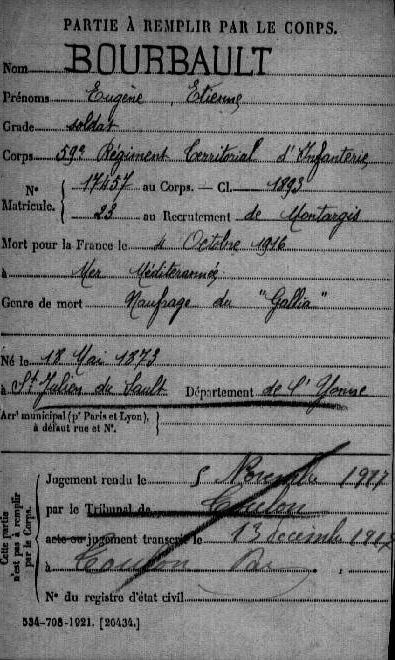 PARTIE À REMPLIR PAR LE CORPS.
Nom BOURBAULT
Prénoms Eugène, Etienne
Grade soldat
Corps 59e Régiment Territorial d'Infanterie
N° Matricule. 17457 au Corps. — Cl. 1893
23 au Recrutement de Montargis
Mort pour la France le 4 Octobre 1916
à Mer Méditerannée
Genre de mort Naufrage du "Gallia"
Né le 18 Mai 1873
à St Julien du Sault Département de l'Yonne
Arrt municipal (pr Paris et Lyon),
à défaut rue et N°.
Cette partie
n'est pas à remplir
par le Corps.
Jugement rendu le 5 Novembre 1917
par le Tribunal de Toulon
acte ou jugement transcrit le 13 décembre 1917
à Toulon
N° du registre d'état civil
534-708-1921. [26434.]